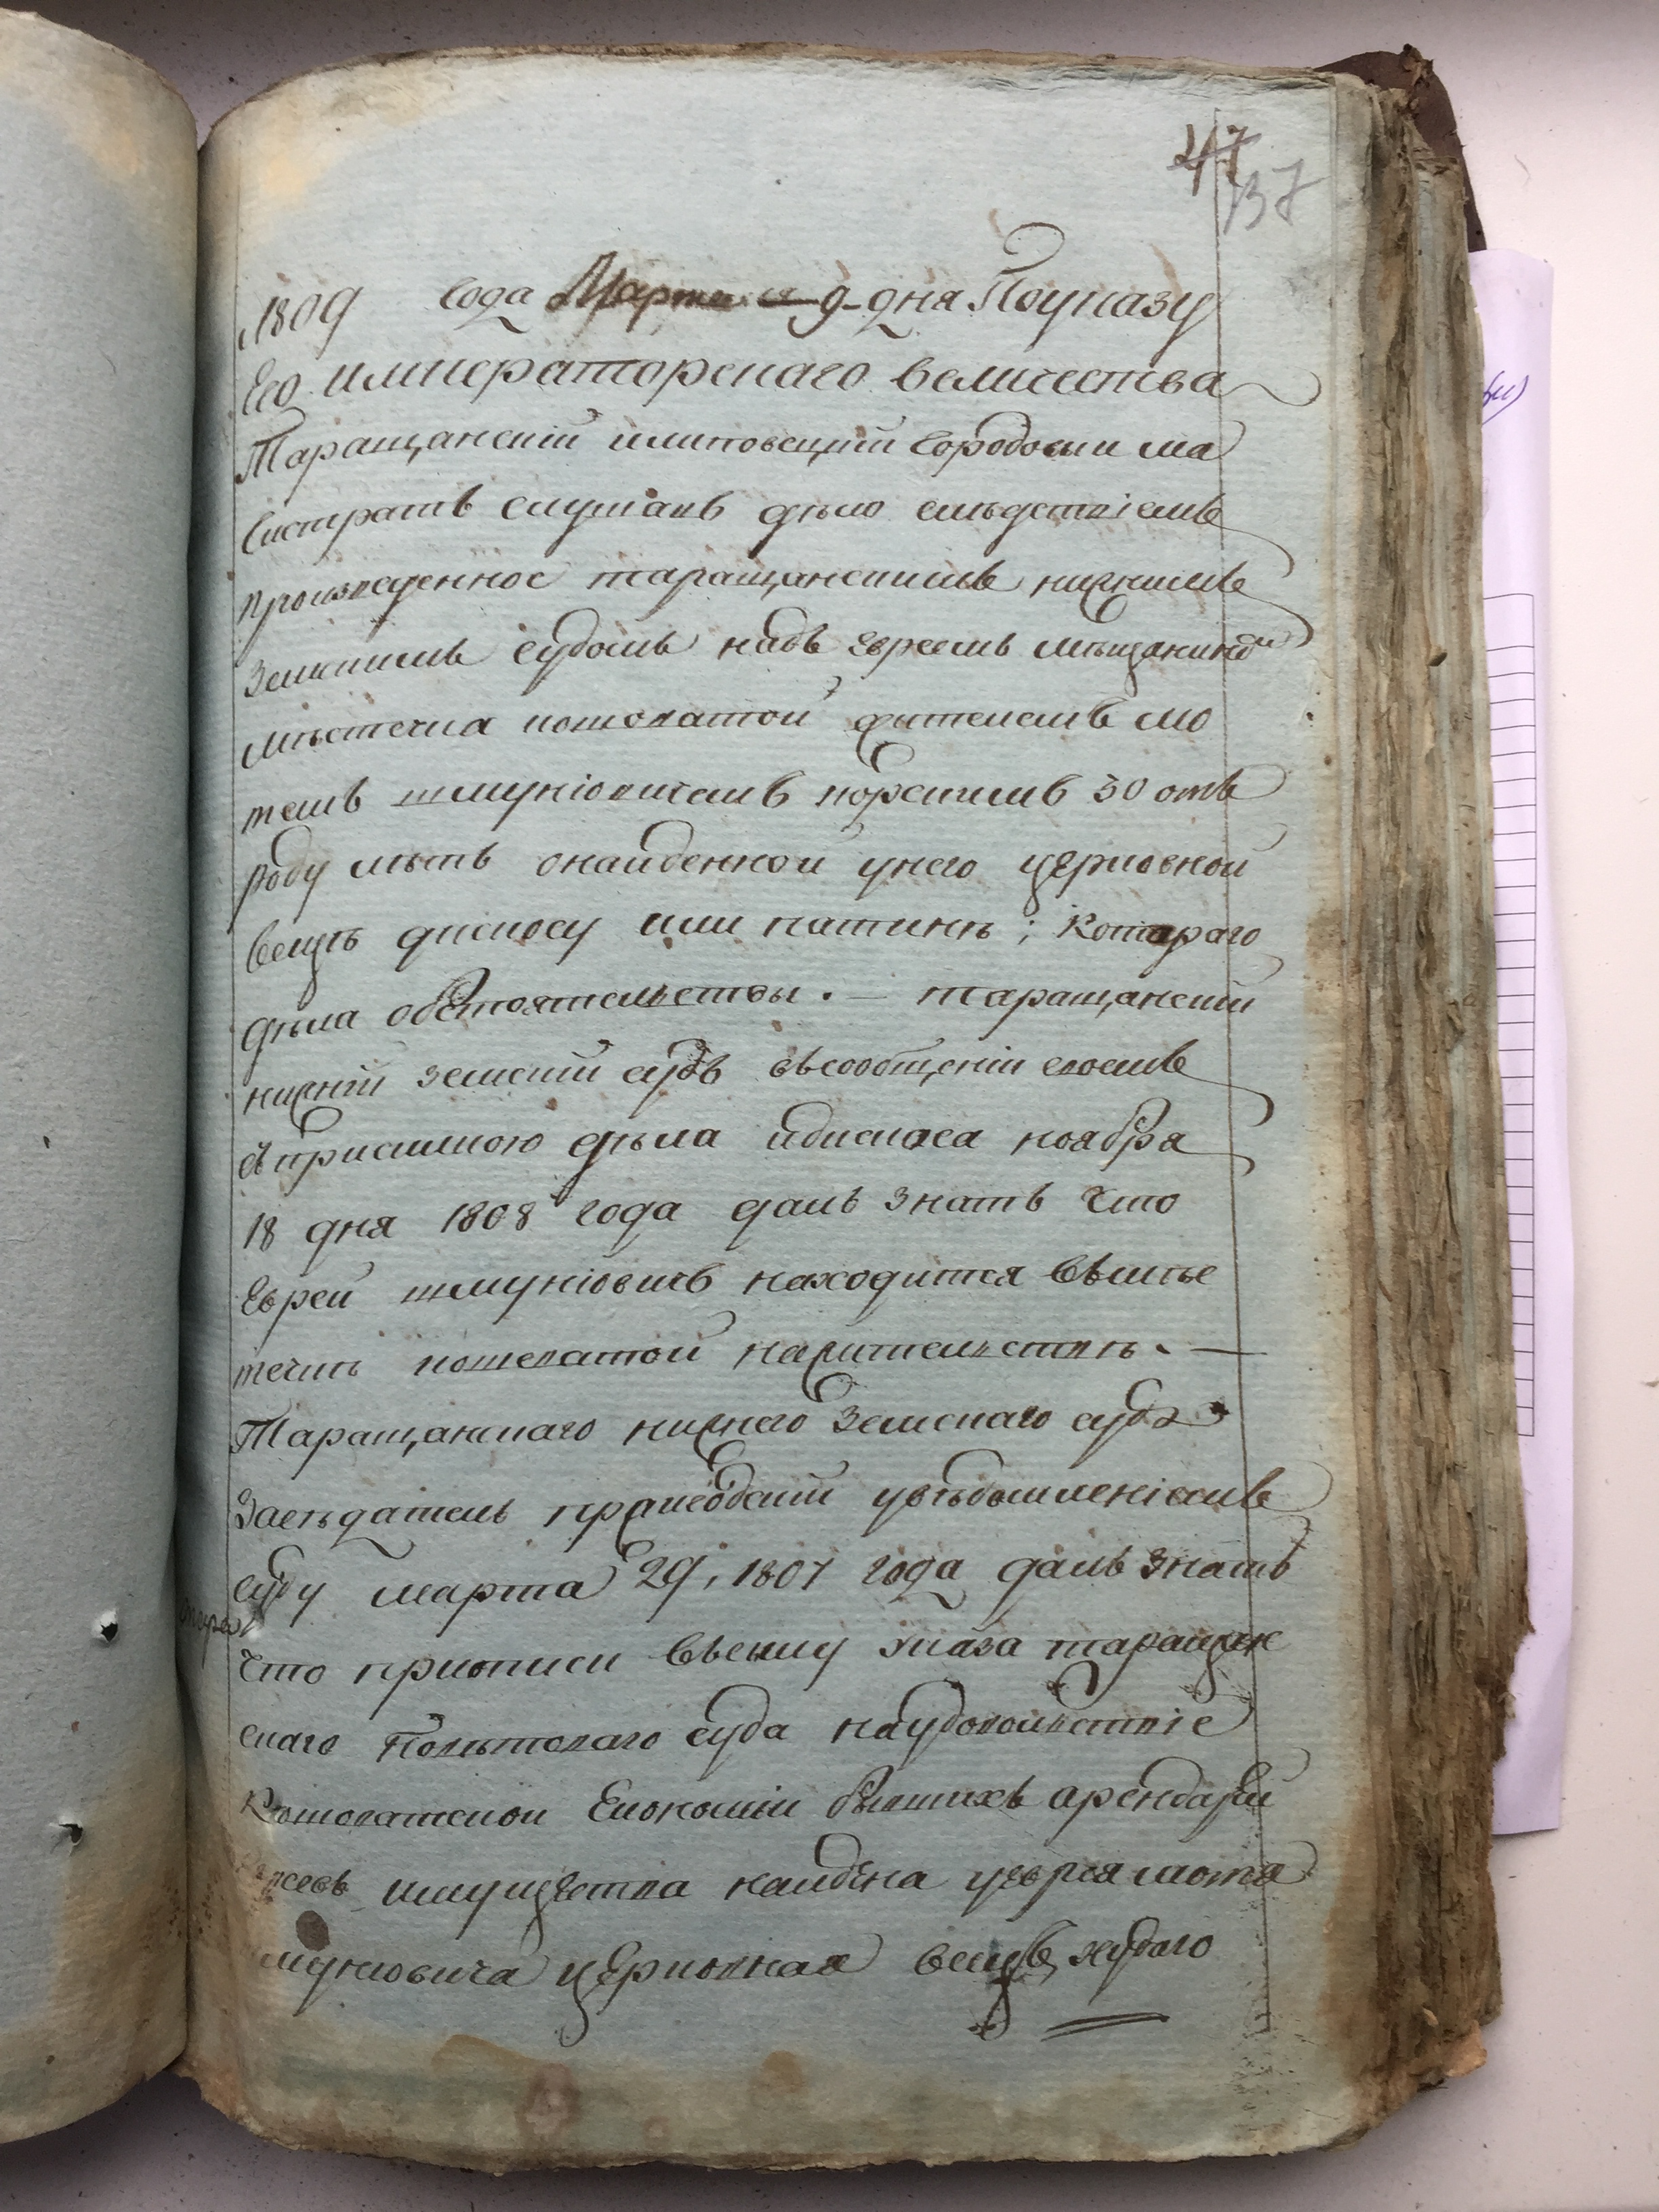 47
137
1809 года Марта 9 дня Поуказу
Его императорскаго величества
Таращанскій илиповецкій городовыи ма
гистратъ слушалъ дѣло слѣдствіемъ
произведенное таращанскимъ нижнимъ
Земскимъ судомъ надъ евреемъ мѣщаниномъ
мѣстечка кошоватой жителемъ мо
темъ шмуніовичемъ корсимъ 30 отъ
роду лѣтъ онайденной унего церковной
вещѣ дискосу или патинѣ; Котораго
дѣла обстоятельствы. — таращанскій
нижній земскій судъ въсообщеніи своемъ
съприсилкою дѣла идискоса ноября
18 дня 1808 года далъ знать что
Еврей шмуніовичъ находится вмѣсте
течкѣ кошоватой нажительствѣ. —
Таращанскаго нижнего Земскаго суда
Засѣдатель увѣдомленіемъ
суду марта 29, 1807 года далъ знать
что приописи въсилу указа таращан
скаго Повѣтоваго суда наудовольствіе
Кошоватской Економіи бывшихъ арендарей
имущества найдена уеврея мотя
муніовича церковная вещъ, худаго